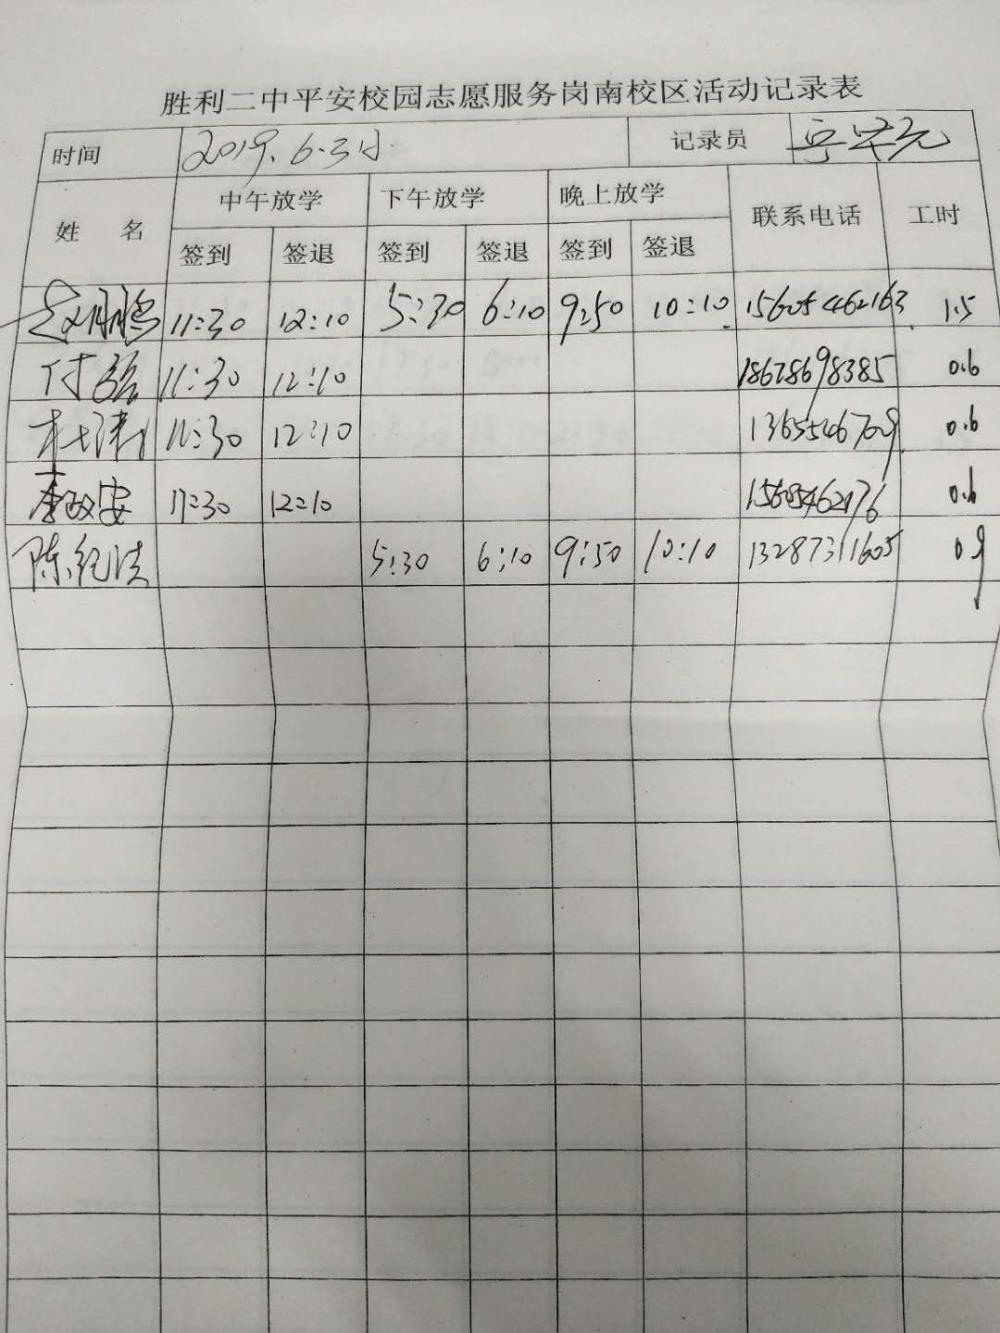 胜利二中平安校园志愿服务岗南校区活动记录表
时间 2019.6.3日 记录员
姓 名 中午放学 下午放学 晚上放学 联系电话 工时
签到 签退 签到 签退 签到 签退
11:30 12:10 5:30 6:10 9:50 10:10 15605462163 1.5
付强 11:30 12:10 18678698385 0.6
杜涛 11:30 12:10 0.6
李政安 11:30 12:10 0.6
陈纪法 5:30 6:10 9:50 10:10 13287311605 0.9